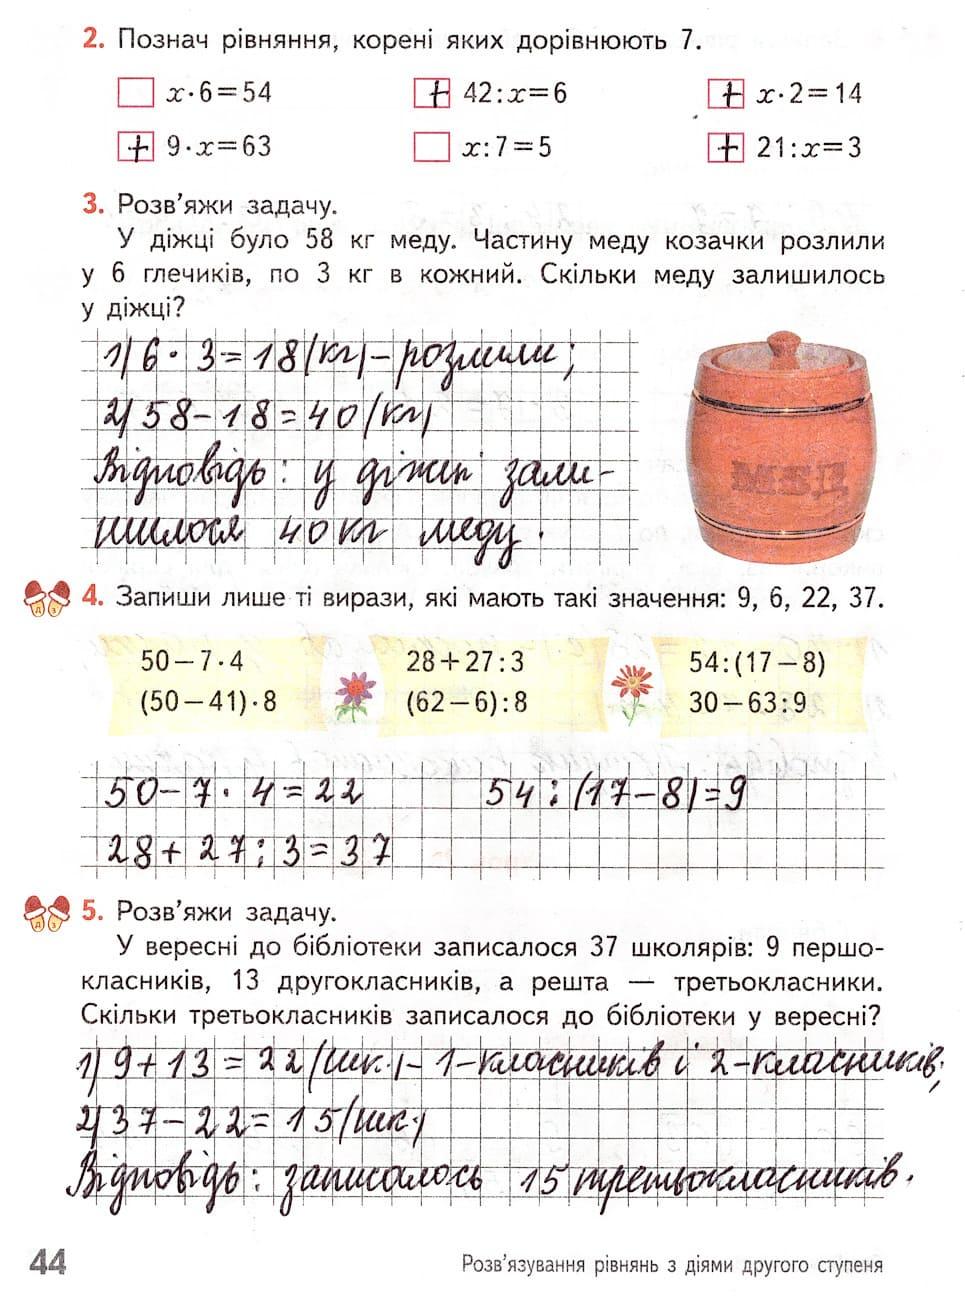 2. Познач рівняння, корені яких дорівнюють 7.
x·6=54 + 42:x=6 + x·2=14
+ 9·x=63 x:7=5 + 21:x=3
3. Розв'яжи задачу.
У діжці було 58 кг меду. Частину меду козачки розлили
у 6 глечиків, по 3 кг в кожний. Скільки меду залишилось
у діжці?
1) 6 · 3 = 18 (кг) – розлили;
2) 58 – 18 = 40 (кг)
Відповідь: у діжці зали-
шилося 40 кг меду.
МЕД
4. Запиши лише ті вирази, які мають такі значення: 9, 6, 22, 37.
50–7·4 28+27:3 54:(17–8)
(50–41)·8 (62–6):8 30–63:9
50 – 7 · 4 = 22 54 : (17 – 8) = 9
28 + 27 : 3 = 37
5. Розв'яжи задачу.
У вересні до бібліотеки записалося 37 школярів: 9 першо-
класників, 13 другокласників, а решта — третьокласники.
Скільки третьокласників записалося до бібліотеки у вересні?
1) 9 + 13 = 22 (шк.) – 1-класників і 2-класників;
2) 37 – 22 = 15 (шк.)
Відповідь: записалось 15 третьокласників.
44 Розв'язування рівнянь з діями другого ступеня